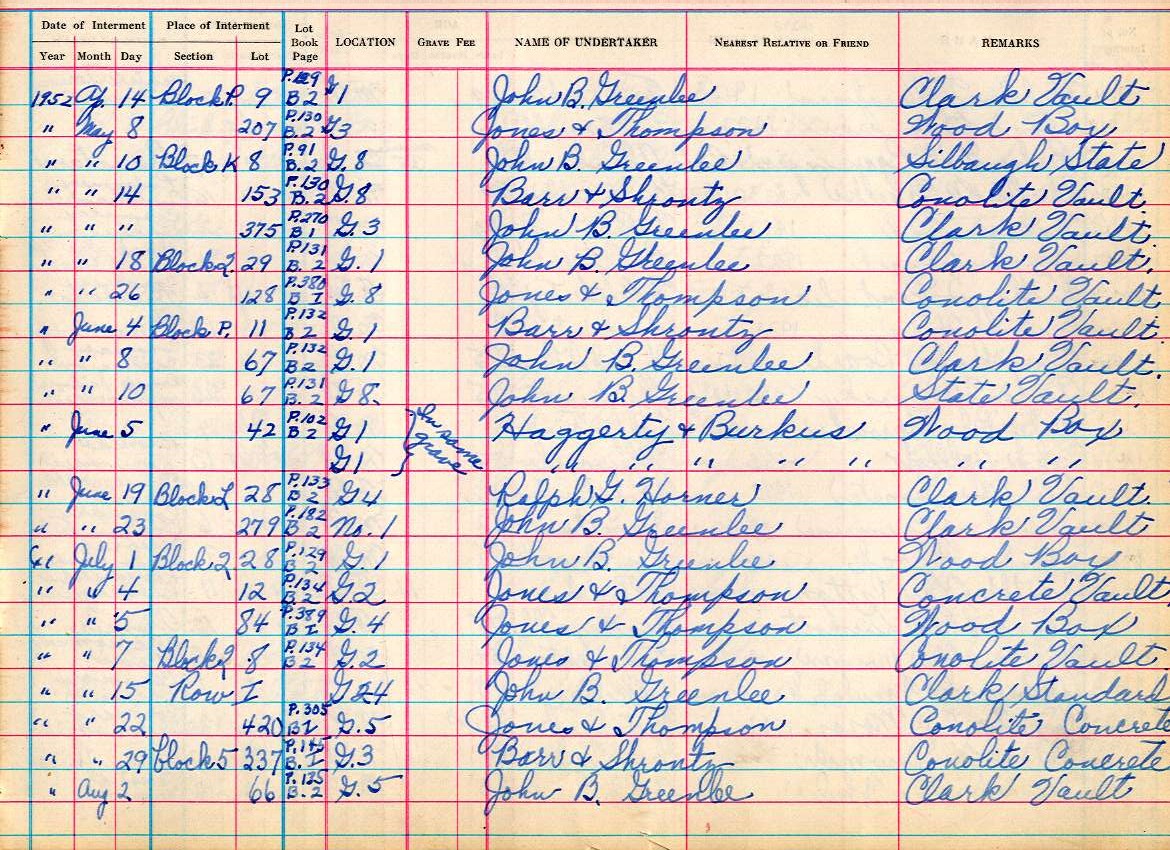 Date of Interment Place of Interment Lot Book Page LOCATION GRAVE FEE NAME OF UNDERTAKER NEAREST RELATIVE OR FRIEND REMARKS
Year Month Day Section Lot
1952 Ap. 14 Block P. 9 P.129 B 2 G 1 John B. Greenlee Clark Vault
" May 8 207 P.130 B. 2 G 3 Jones & Thompson Wood Box
" " 10 Block K 8 P.91 B.2 G. 8 John B. Greenlee Silbaugh State
" " 14 153 P.130 B. 2 G. 8 Barr & Shrontz Conolite Vault.
" " " 375 P.270 B 1 G. 3 John B. Greenlee Clark Vault.
" " 18 Block 2. 29 P.131 B. 2 G. 1 John B. Greenlee Clark Vault.
" " 26 128 P.380 B I G. 8 Jones & Thompson Conolite Vault.
" June 4 Block P. 11 P.132 B 2 G. 1 Barr & Shrontz Conolite Vault.
" " 8 67 P.132 B 2 G. 1 John B. Greenlee Clark Vault.
" " 10 67 P.131 B. 2 G 8. John B Greenlee State Vault.
" June 5 42 P.102 B 2 G 1 In same grave Haggerty & Burkus Wood Box
G 1 " " " " " " "
" June 19 Block L 28 P.133 B 2 G 4 Ralph G. Horner Clark Vault
" " 23 279 P.182 B 2 No. 1 John B. Greenlee Clark Vault
" July 1 Block 2 28 P.129 B 2 G. 1 John B. Greenlee Wood Box
" " 4 12 P.134 B. 2 G. 2 Jones & Thompson Concrete Vault
" " 5 84 P.389 B I G. 4 Jones & Thompson Wood Box
" " 7 Block 2 8 P.134 B 2 G. 2 Jones & Thompson Conolite Vault
" " 15 Row I G 24 John B. Greenlee Clark Standard
" " 22 420 P.305 B I G. 5 Jones & Thompson Conolite Concrete
" " 29 Block 5 337 B. I G. 3 Barr & Shrontz Conolite Concrete
" Aug 2 66 P.135 B. 2 G. 5 John B. Greenlee Clark Vault